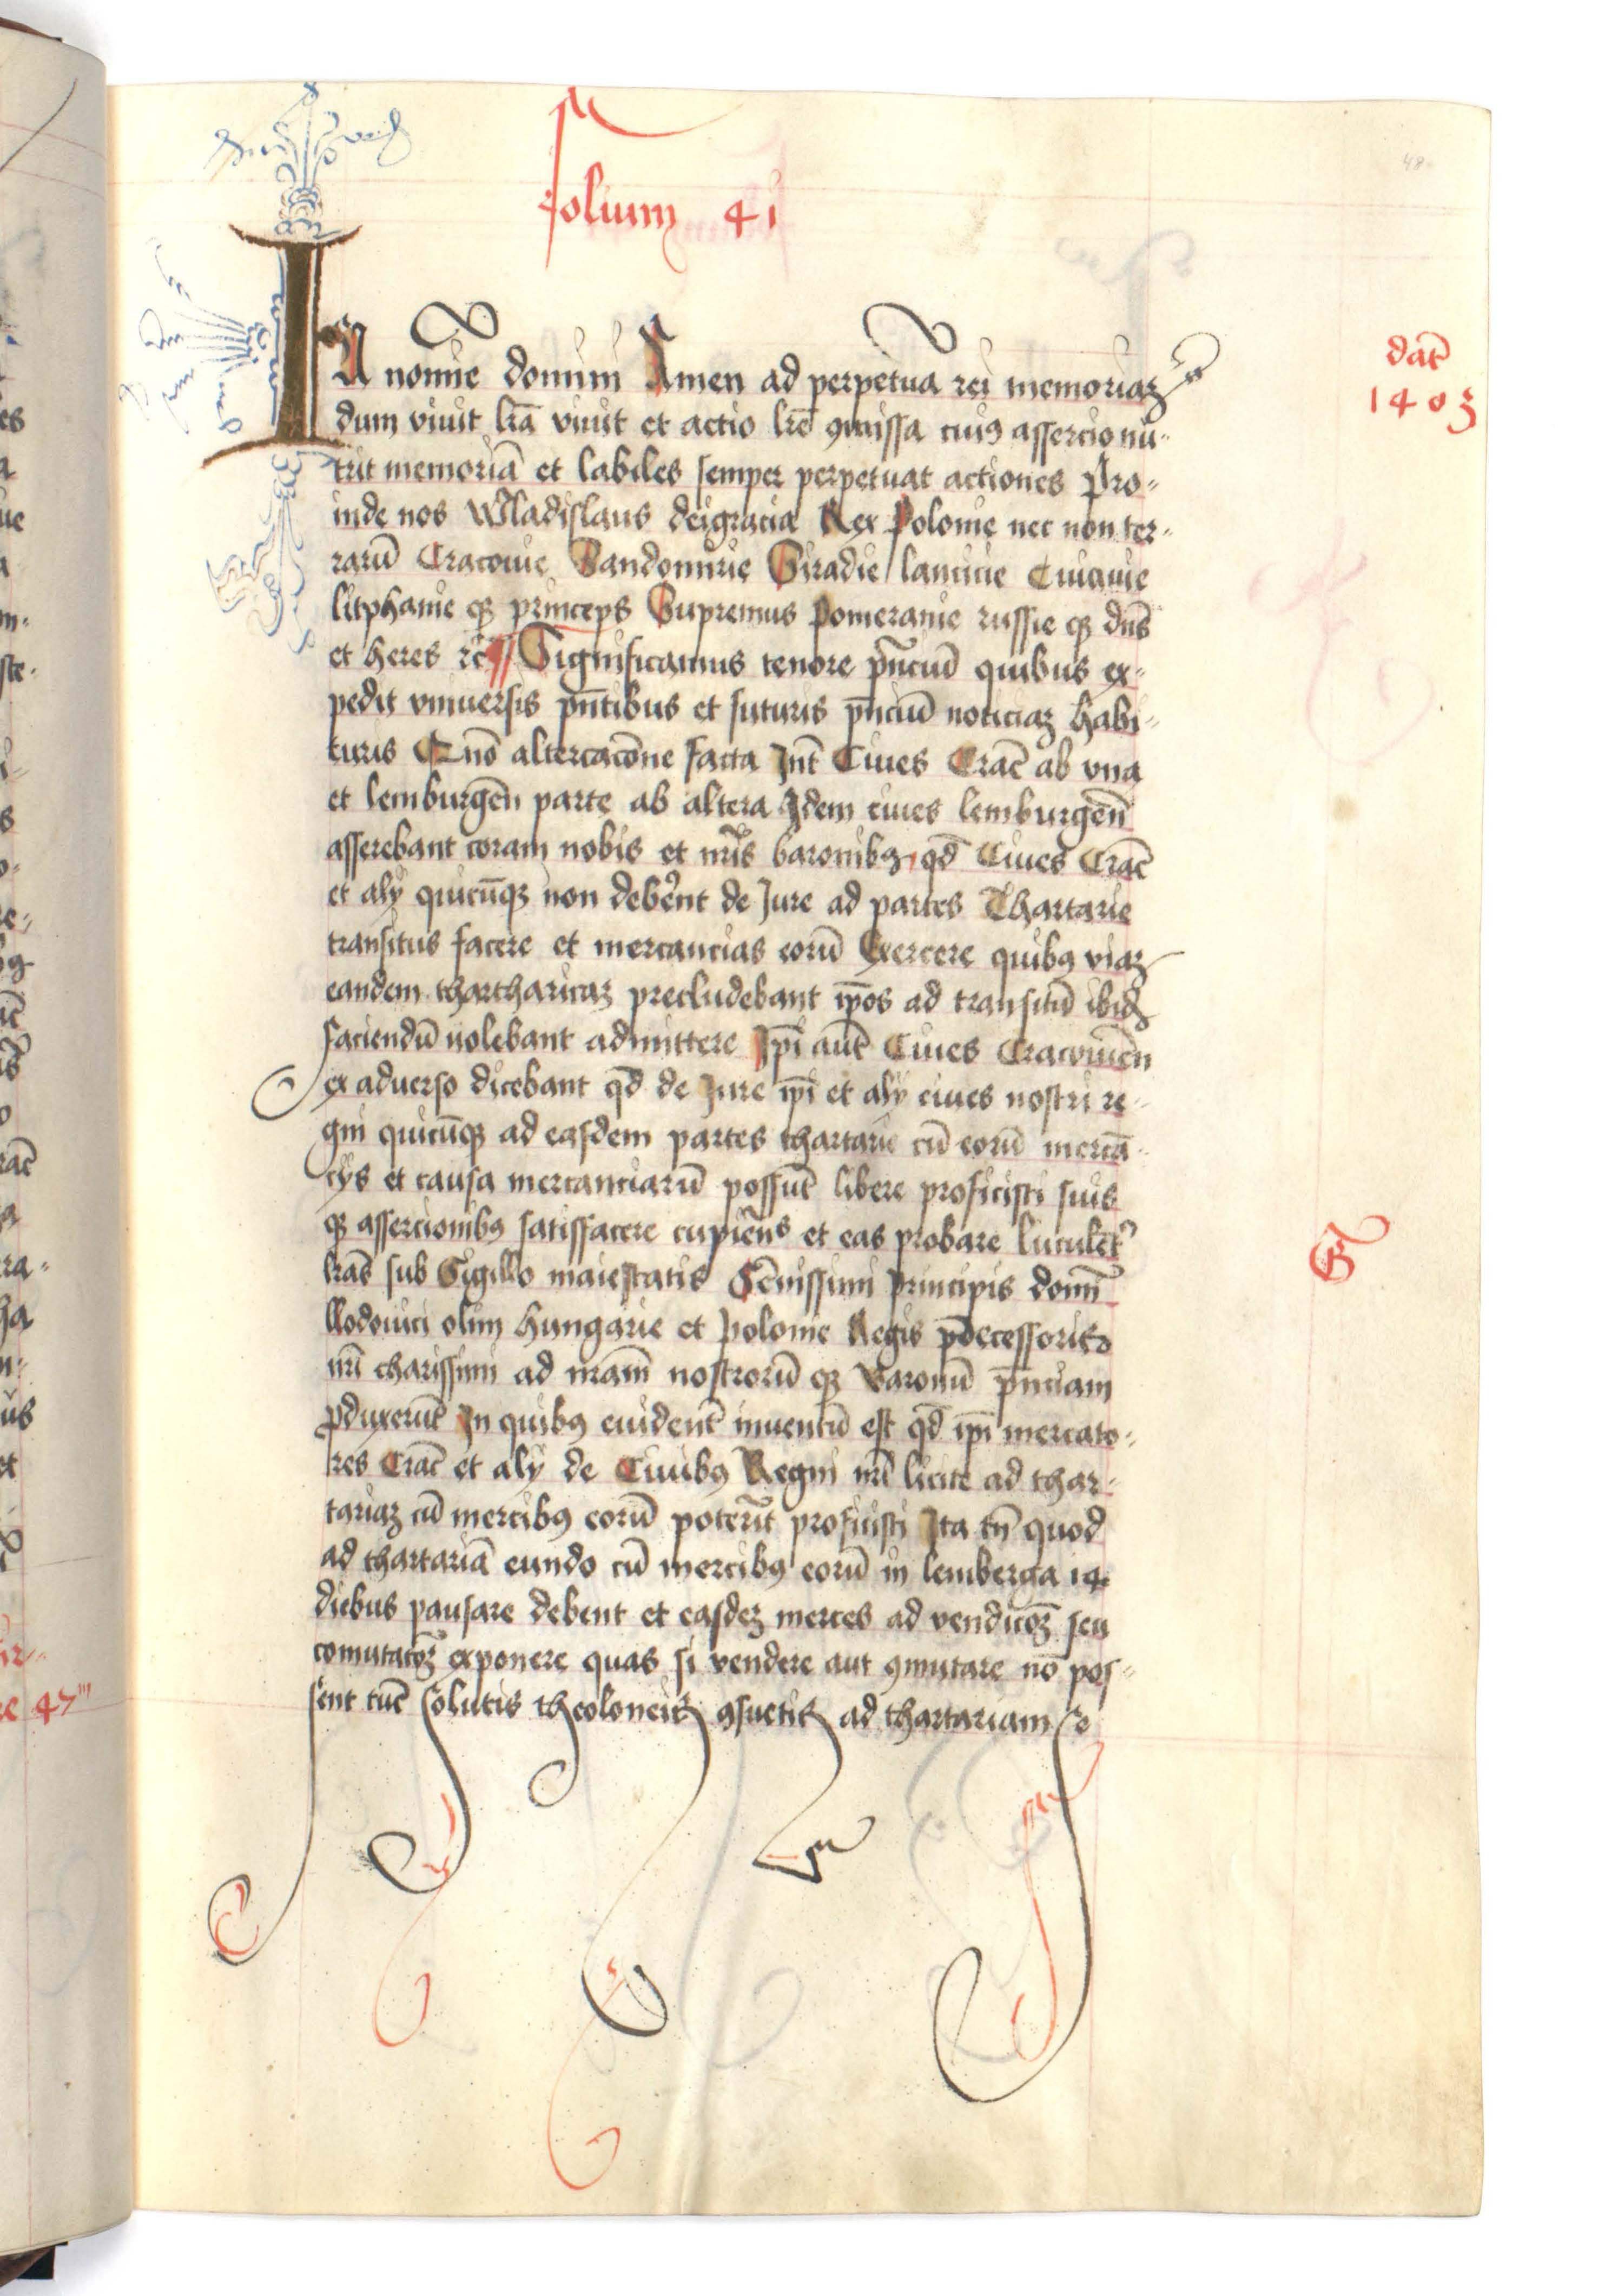 48
folium 41
dat̄
1403
In nomine domini Amen ad perpetuā rei memoriaꝫ
dum viuit lr̄a viuit et actio lr̄e ꝯmissa cuiꝰ assercio nu-
trit memoriā et labiles semper perpetuat actiones Pro-
inde nos Wladislaus deigracia Rex Polonie nec non ter-
rarū Cracouie Sandomirie Siradie lancicie Cuiauie
litphanie qꝫ princeps Supremus Pomeranie russie qꝫ dn̄s
et heres rc̄ Significamus tenore pn̄ciū quibus ex-
pedit vniuersis pn̄tibus et futuris pn̄ciū noticiaꝫ habi-
turis Qnō altercacōne facta Int̄ Ciues Crac̄ ab vna
et lemburgen̄ parte ab altera Idem ciues lemburgen̄
asserebant coram nobis et nr̄is baronibꝫ qd̄ Ciues Crac̄
et alij quicūqꝫ non debēnt de Jure ad partes Thartarie
transitus facere et mercancias eorū Exercere quibꝰ viaꝫ
eandem thartharicaꝫ precludebant ip̄os ad transitū ibid̄
faciendū nolebant admittere Ip̄i aut̄ Ciues Cracouien̄
ex aduerso dicebant qd̄ de Jure ip̄i et alij ciues nostri re-
gni quicūqꝫ ad easdem partes thartarie cū eorū mercā-
cijs et causa mercanciarū possūt libere proficisci suis
qꝫ assercionibꝰ satisfacere cupiēns et eas probare luculēt̉
lr̄as sub Sigillo maiestatis Sēnissimi Principis domī
llodouici olim Hungarie et Polonie Regis pd̄ecessoris
nr̄i charissimi ad nr̄am nostrorū qꝫ Baronū pn̄ciam
ꝓduxerūt In quibꝰ euident̄ inuentū est qd̄ ip̄i mercato-
res Crac̄ et alij de Ciuibꝰ Regni nr̄i licite ad thar-
tariaꝫ cū mercibꝰ eorū poterūt proficisci Ita tn̄ quod
ad thartariā eundo cū mercibꝰ eorū in lemberga 14
diebus pausare debent et easdeꝫ merces ad vendicōꝫ seu
comutatōꝫ exponere quas si vendere aut ꝯmutare nō pos-
sent tūc solutis theoloneis ꝯsuetis ad thartariam se